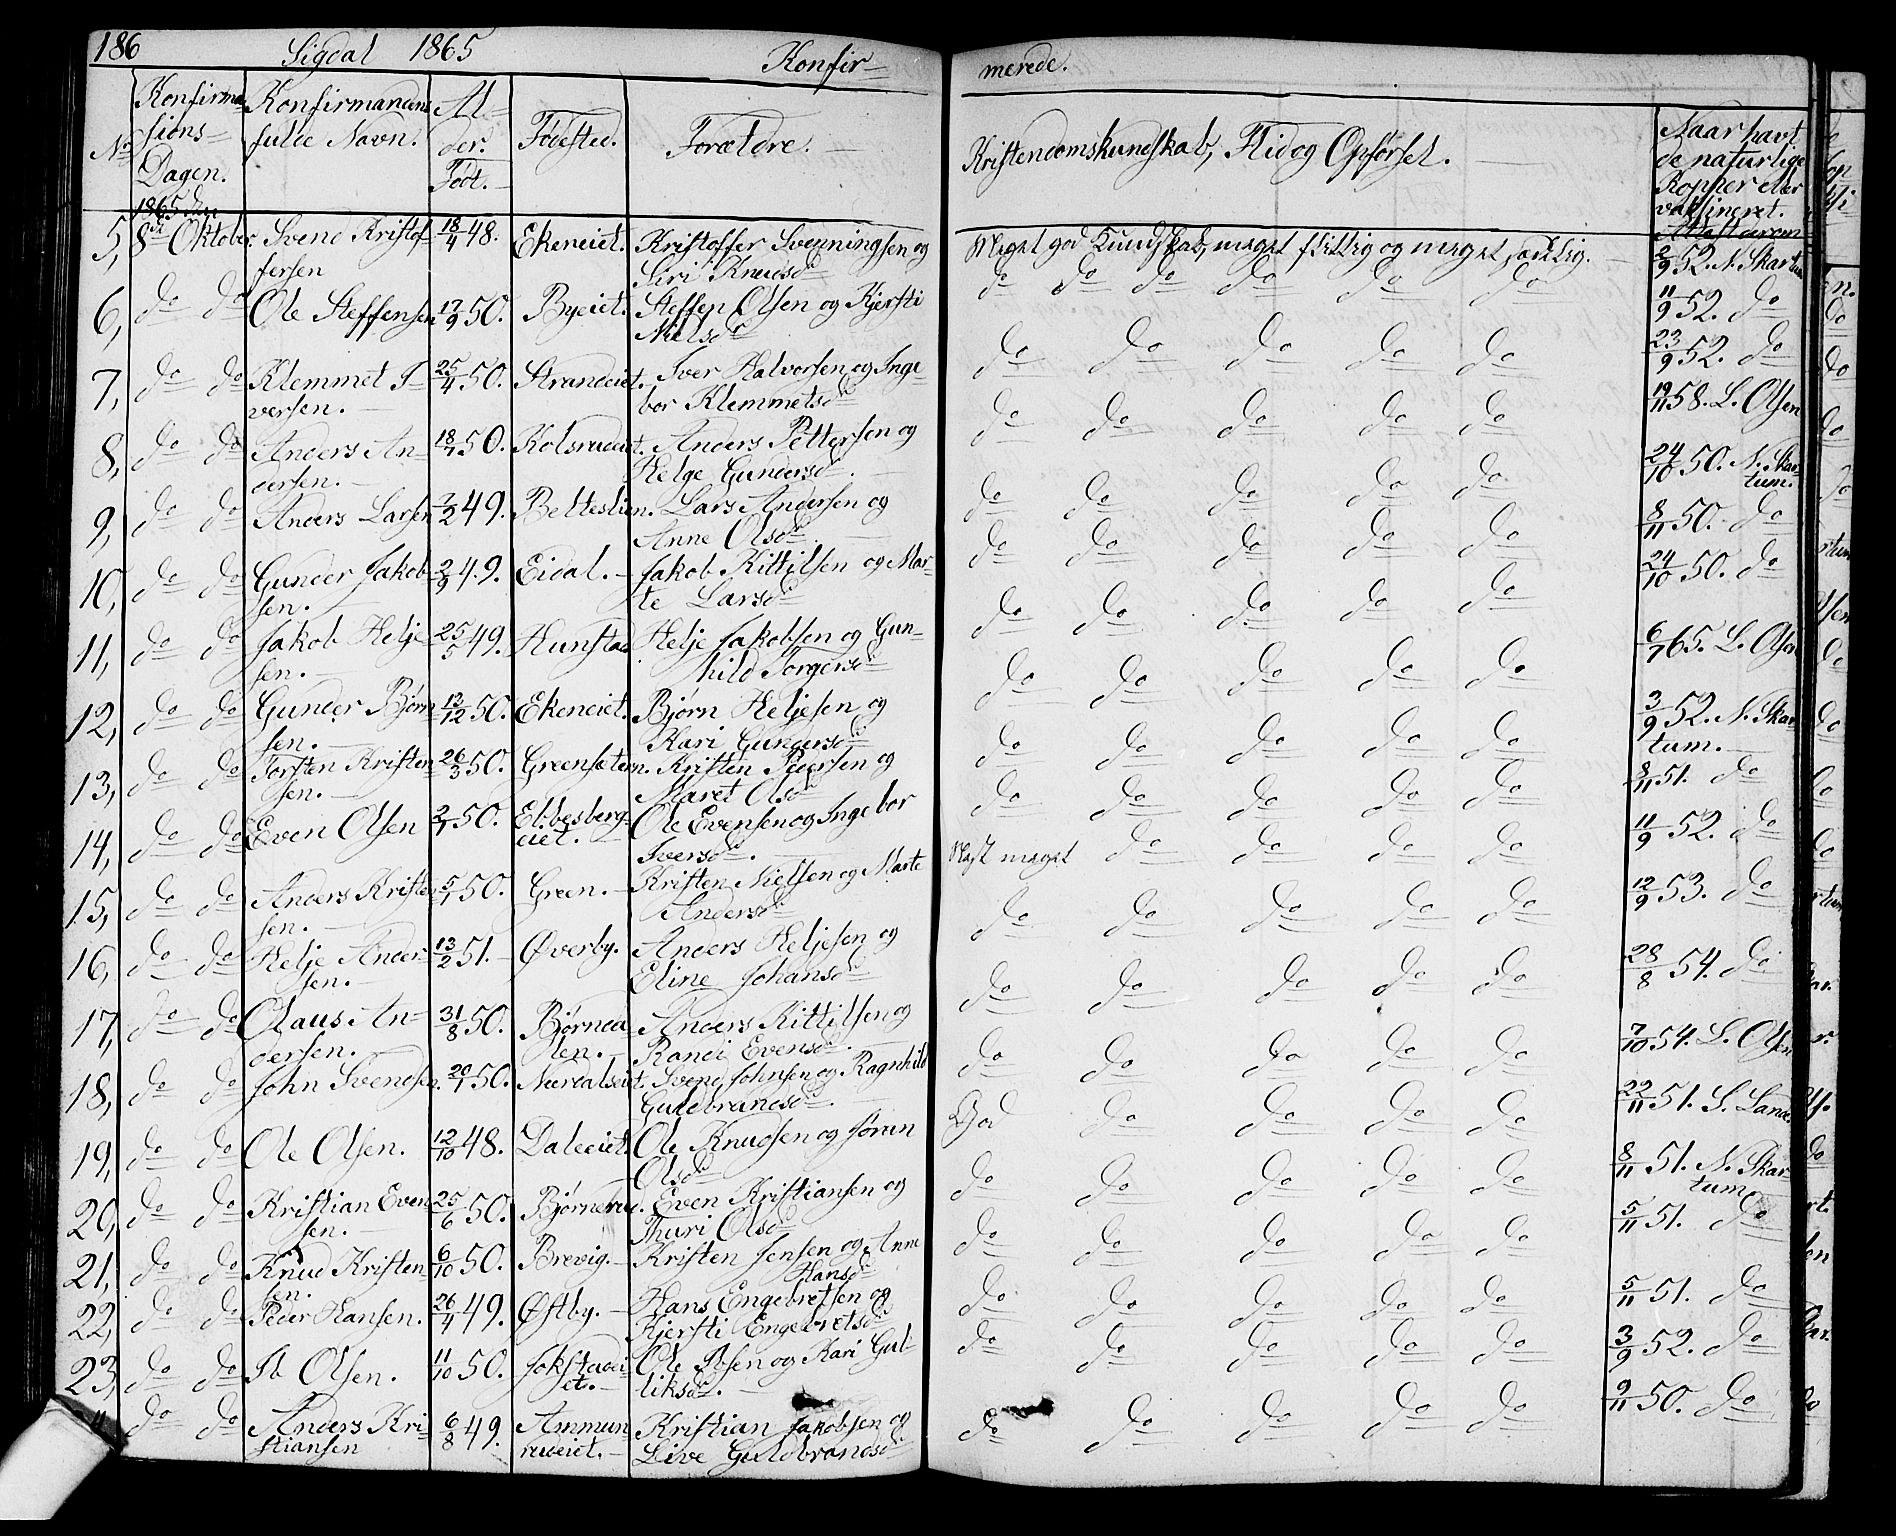 186 Sigdal 1865 Konfir-
merede.
No Konfirma-
sions-
Dagen. Konfirmandens
fulde Navn. Al-
der.
Født. Fødested. Forældre. Kristendomskundskab, Flid og Opførsel. Naar havt
de naturlige
Kopper eller
vaksineret.
Attest derom
1865 den
5, 8de Oktober Svend Kristof- 18/4 48. Ekeneiet. Kristoffer Svenningsen og Meget god Kundskab, meget flittig og meget sædelig. 2/9 52. N. Skartum
fersen Siri Knudsdr
6, do do Ole Steffensen 17/9 50. Byeiet. Steffen Olsen og Kjersti do do do do do do 11/9 52. do
Nielsdr
7, do do Klemmet I- 25/4 50. Strandeiet. Iver Halvorsen og Inge- do do do do do 23/9 52. do
versen. bor Klemmetsdr
8, do do Anders An- 18/7 50. Kolsrudeiet. Anders Pettersen og do do do do do 19/11 58. L. Olsen
dersen. Helge Gundersdr.
9, do do Anders Larsen 7/2 49. Betteslien. Lars Andersen og do do do do do 24/10 50. N. Skar-
tum.
Anne Olsdr
10, do do Gunder Jakob- 2/9 49. Eidal. Jakob Kittilsen og Mar- do do do do do 8/11 50. do
sen. te Larsdr
11, do do Jakob Helje- 25/5 49. Hunstad Helje Jakobsen og Gun- do do do do do 24/10 50. do
sen. hild Torgersdr
12, do do Gunder Bjørn- 13/12 50. Ekeneiet. Bjørn Heljesen og do do do do do 6/7 65. L. Olsen
sen. Kari Gundersdr
13, do do Torsten Kristen- 26/3 50. Greensetern. Kristen Pedersen og do do do do do 3/9 52. N. Skar-
tum.
sen. Maret Olsdr
14, do do Even Olsen 2/7 50. Ebbesberg- Ole Evensen og Ingebor do do do do do 8/11 51. do
eiet. Iversdr.
15, do do Anders Kristen- 5/7 50. Green. Kristen Nielsen og Marte Næst meget do do do do 11/9 52. do
sen. Andersdr
16, do do Helje Ander- 13/2 51. Øverby. Anders Heljesen og do do do do do 12/9 53. do
sen. Eline Johansdr
17, do do Olaus An- 31/8 50. Bjørnda- Anders Kittilsen og do do do do do 28/8 54. do
dersen. len. Randi Evensdr.
18, do do John Svendsen. 20/1 50. Nerdalseiet. Svend Johnsen og Ragnhild do do do do do 7/10 54. L. Olsen
Guldbrandsdr.
19, do do Ole Olsen. 12/10 48. Daleeiet. Ole Knudsen og Jørun God do do do do 22/11 51. S. Lande.
Olsdr
20, do do Kristian Even- 25/6 50. Bjørnerud. Even Kristiansen og do do do do do 8/11 51. N. Skar-
tum
sen. Thuri Olsdr
21, do do Knud Kristen- 6/10 50. Brevig. Kristen Jensen og Anne do do do do do 5/11 51. do
sen. Hansdr
22, do do Peder Hansen. 26/4 49. Østby. Hans Engebretsen og do do do do do 5/11 51. do
Kjersti Engebretsdr
23, do do Ib Olsen. 11/10 50. Jokstadei- Ole Ibsen og Kari Gul- do do do do do 3/9 52. do
et. liksdr.
do do Anders Kri- 6/8 49. Ammun- Kristian Jakobsen og do do do do do 9/11 50. do
stiansen rudeiet. Live Guldbrandsdr